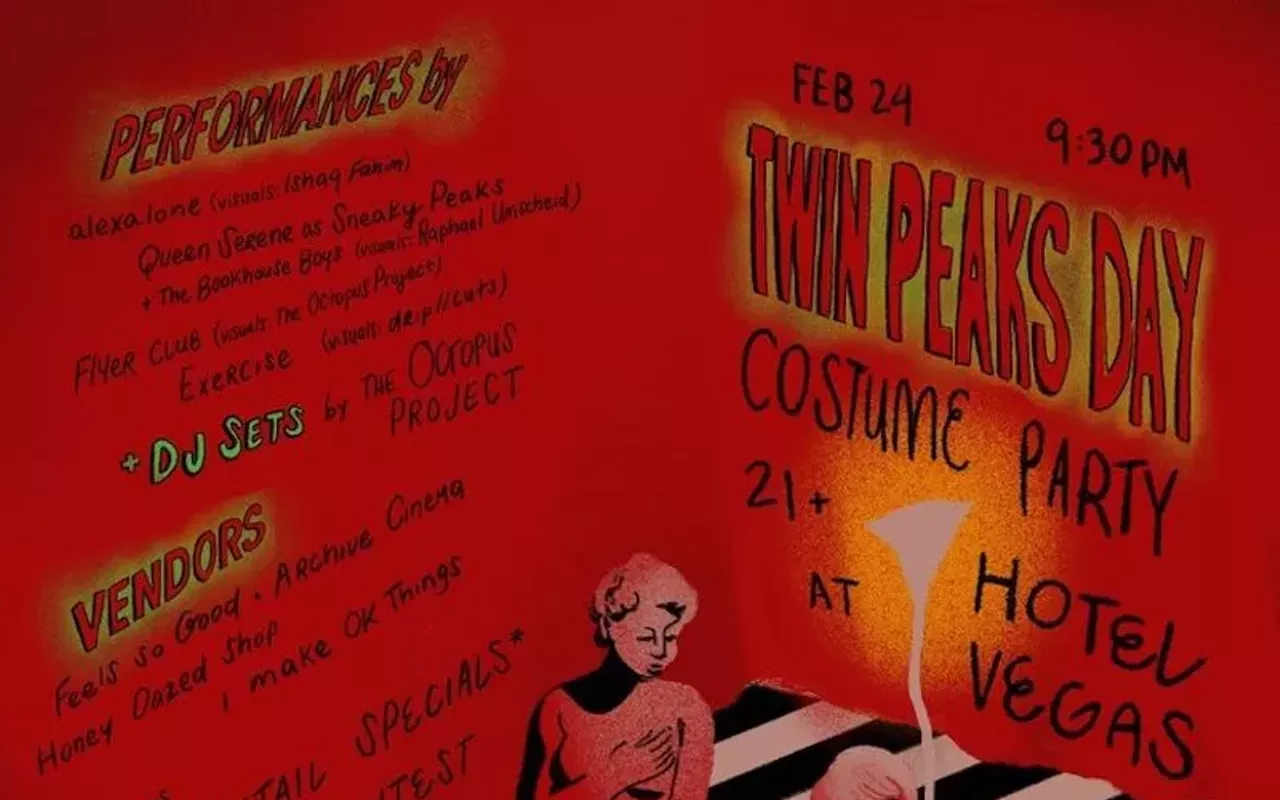 PERFORMANCES by
alexalone (visuals: Ishaq Fahim)
Queen Serene as Sneaky Peaks
+ The Bookhouse Boys (visuals: Raphael Umscheid)
Flyer Club (visuals: The Octopus Project)
Exercise (visuals: drip//cuts)
+ DJ SETS by THE OCTOPUS
PROJECT
VENDORS
Feels So Good • Archive Cinema
Honey Dazed Shop
i make OK Things
SPECIALS*
FEB 24
9:30 PM
TWIN PEAKS DAY
COSTUME PARTY
21+
AT HOTEL
VEGAS